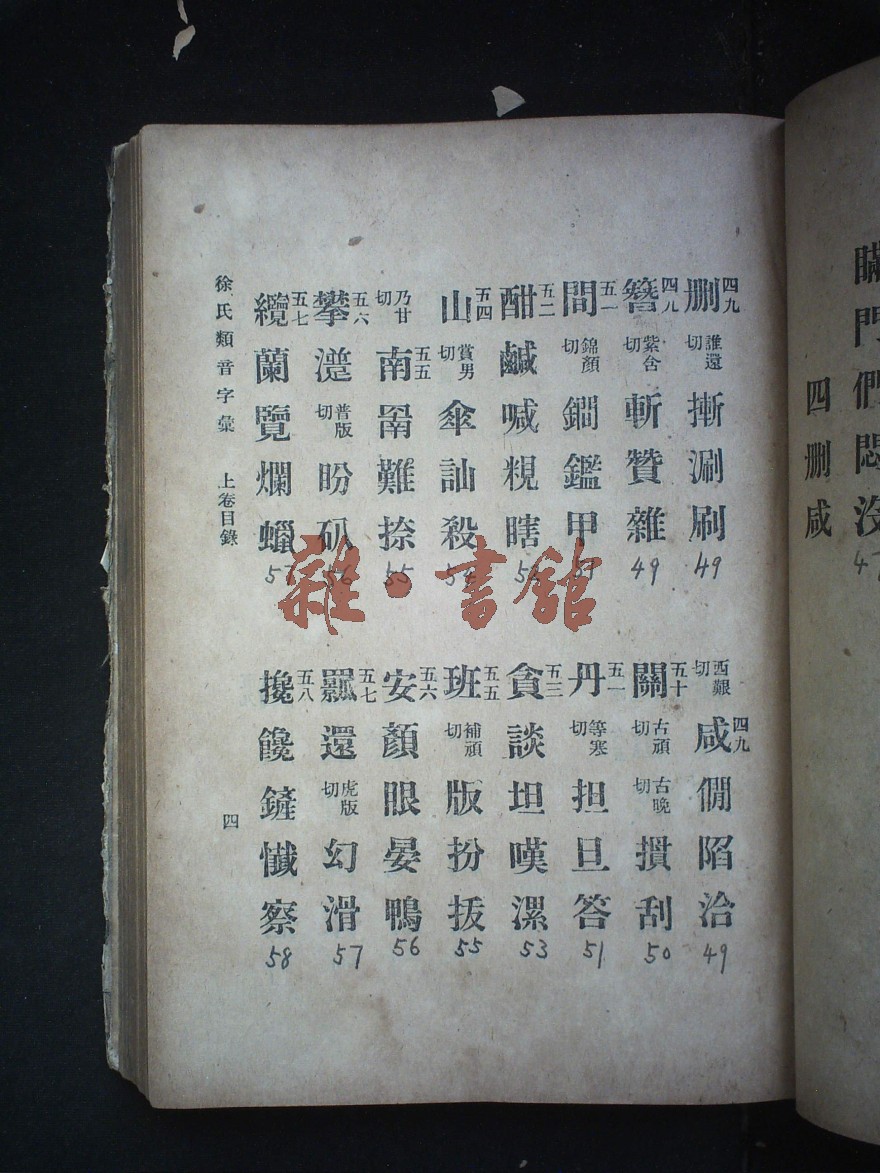 瞞門們悶沒
47
四删咸
删四九 誰還切 摲涮刷
49
西艱切 咸四九 僩陷洽
49
簪四九 紫含切 斬贊雜
49
關五十 古頑切 古晚切 摜刮
50
間五一 錦顏切 鐧鑑甲
51
丹五一 等寒切 担旦答
51
酣五二 鹹喊粯瞎
52
貪五三 談坦嘆漯
53
山五四 賞男切 傘訕殺
54
班五五 補頑切 版扮拔
55
乃甘切 南五五 罱難捺
55
安五六 顏眼晏鴨
56
攀五六 普版切 盼
56
還五七 虎版切 幻滑
57
纜五七 蘭覽爛蠟
57
攙五八 饞鏟懺察
58
徐氏類音字彙 上卷目錄 四
雜·書館